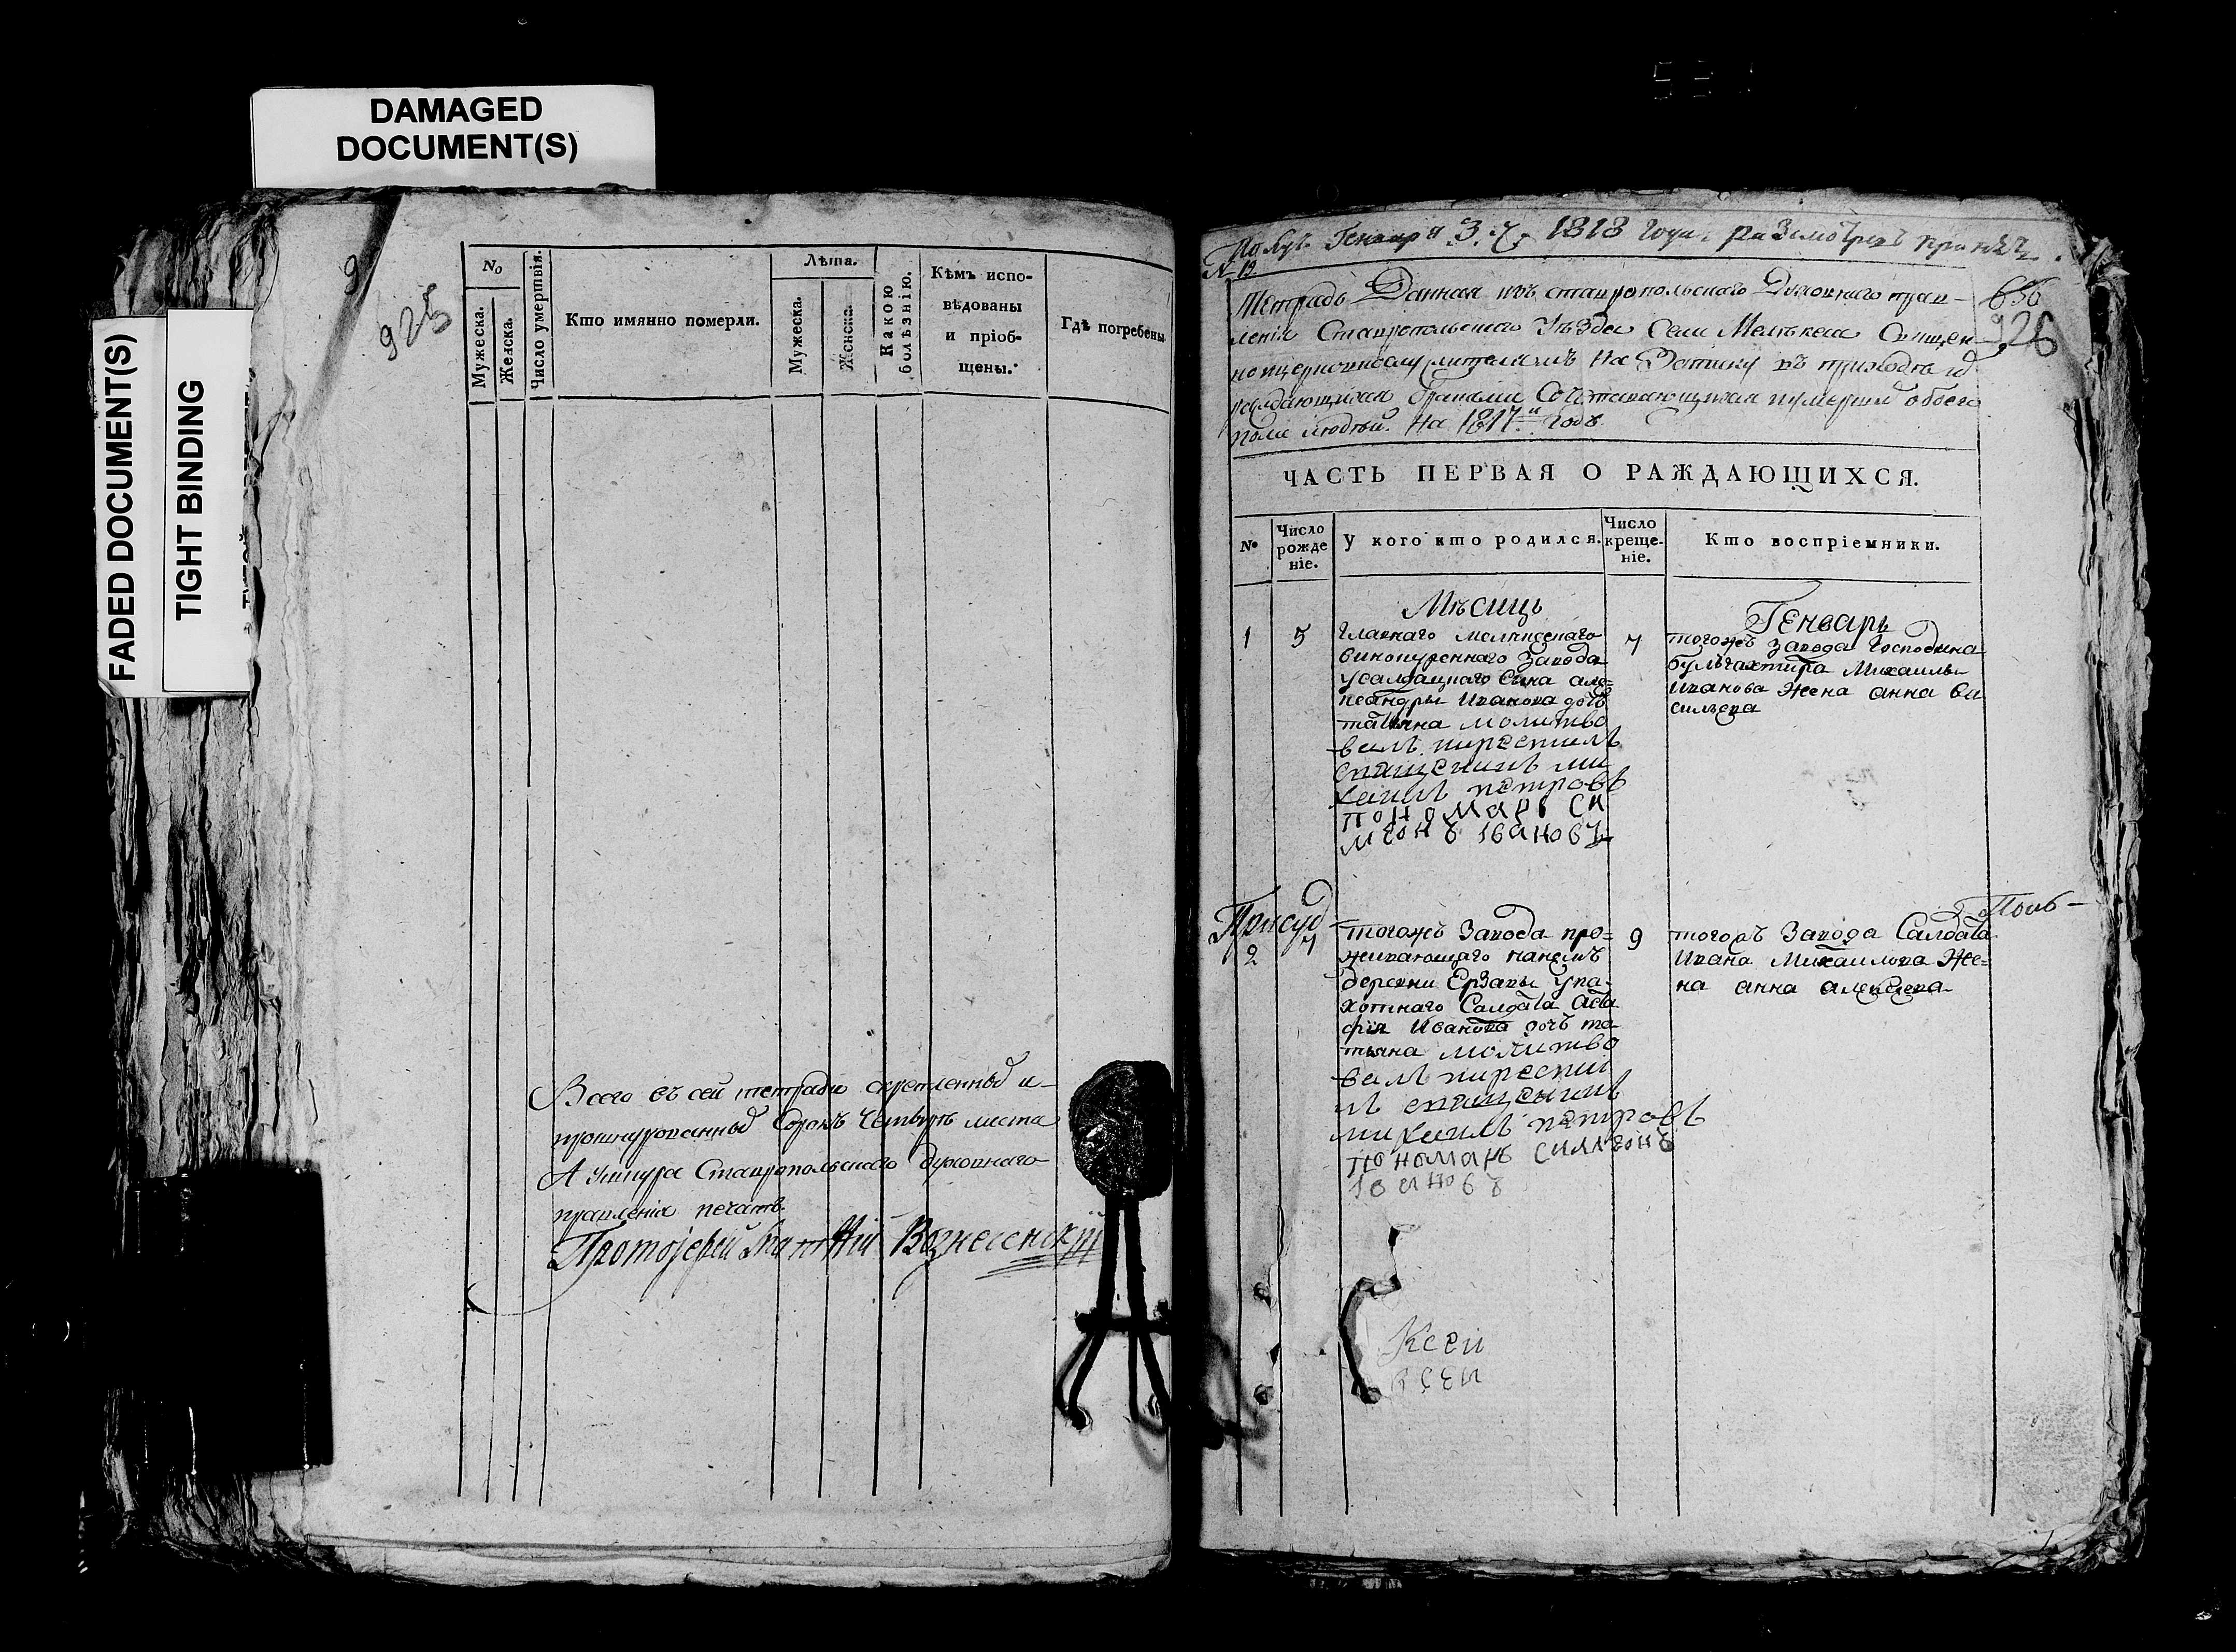 DAMAGED
DOCUMENT(S)
FADED DOCUMENT(S)
TIGHT BINDING
925
№
Мужеска.
Женска.
Число умертвія.
Кто имянно померли.
Лѣта.
Мужеска.
Женска.
Какою
болѣзнію.
Кѣмъ испо-
вѣдованы
и пріоб-
щены.
Гдѣ погребены
Всего въ сей тетради скрепленныхъ и
прошнурованныхъ Сорокъ Четыре листа
А Ушнура Ставропольскаго духовнаго
правленія печать.
Протоіерей Вознесенскій
Генваря 3. ч. 1818 года.
№ 19.
Тетрадь Данная изъ ставропольскаго Духовнаго прав-
ленія Ставропольскаго Уѣзда Села Мелекеса Священ-
ноцерковнослужителямъ На Записку въ приходѣ их
раждающихся браками Сочетавающихся иумерших обоего
пола людѣй. На 1817й годъ.
656
926
ЧАСТЬ ПЕРВАЯ О РАЖДАЮЩИХСЯ.
№
Число
рожде
ніе.
У кого кто родился.
Число
креще-
ніе.
Кто воспріемники.
Мѣсяцъ
Генварь
1
5
главнаго мелекескаго
винокуреннаго Завода
усалдацкаго Сына але-
ксандры Иванова дочь
татьяна молитво
валъ икрестилъ
священникъ ми
хаилъ петровъ
пономарь Си
меонъ Iвановъ
7
тогожъ завода Господина
бульгахтира Михаилы
Иванова жена анна ва
сильева
2
7
тогожъ Завода про-
живающаго нанемъ
деревни Ерзавы упа-
хотнаго Салдата
Иванова дочь та-
тьяна молитво
валъ икрести
лъ священникъ
михаилъ петровъ
пономарь симеонъ
Iвановъ
9
тогожъ Завода Салдата
Ивана Михаилова Же-
на анна алексеева
Ксеи